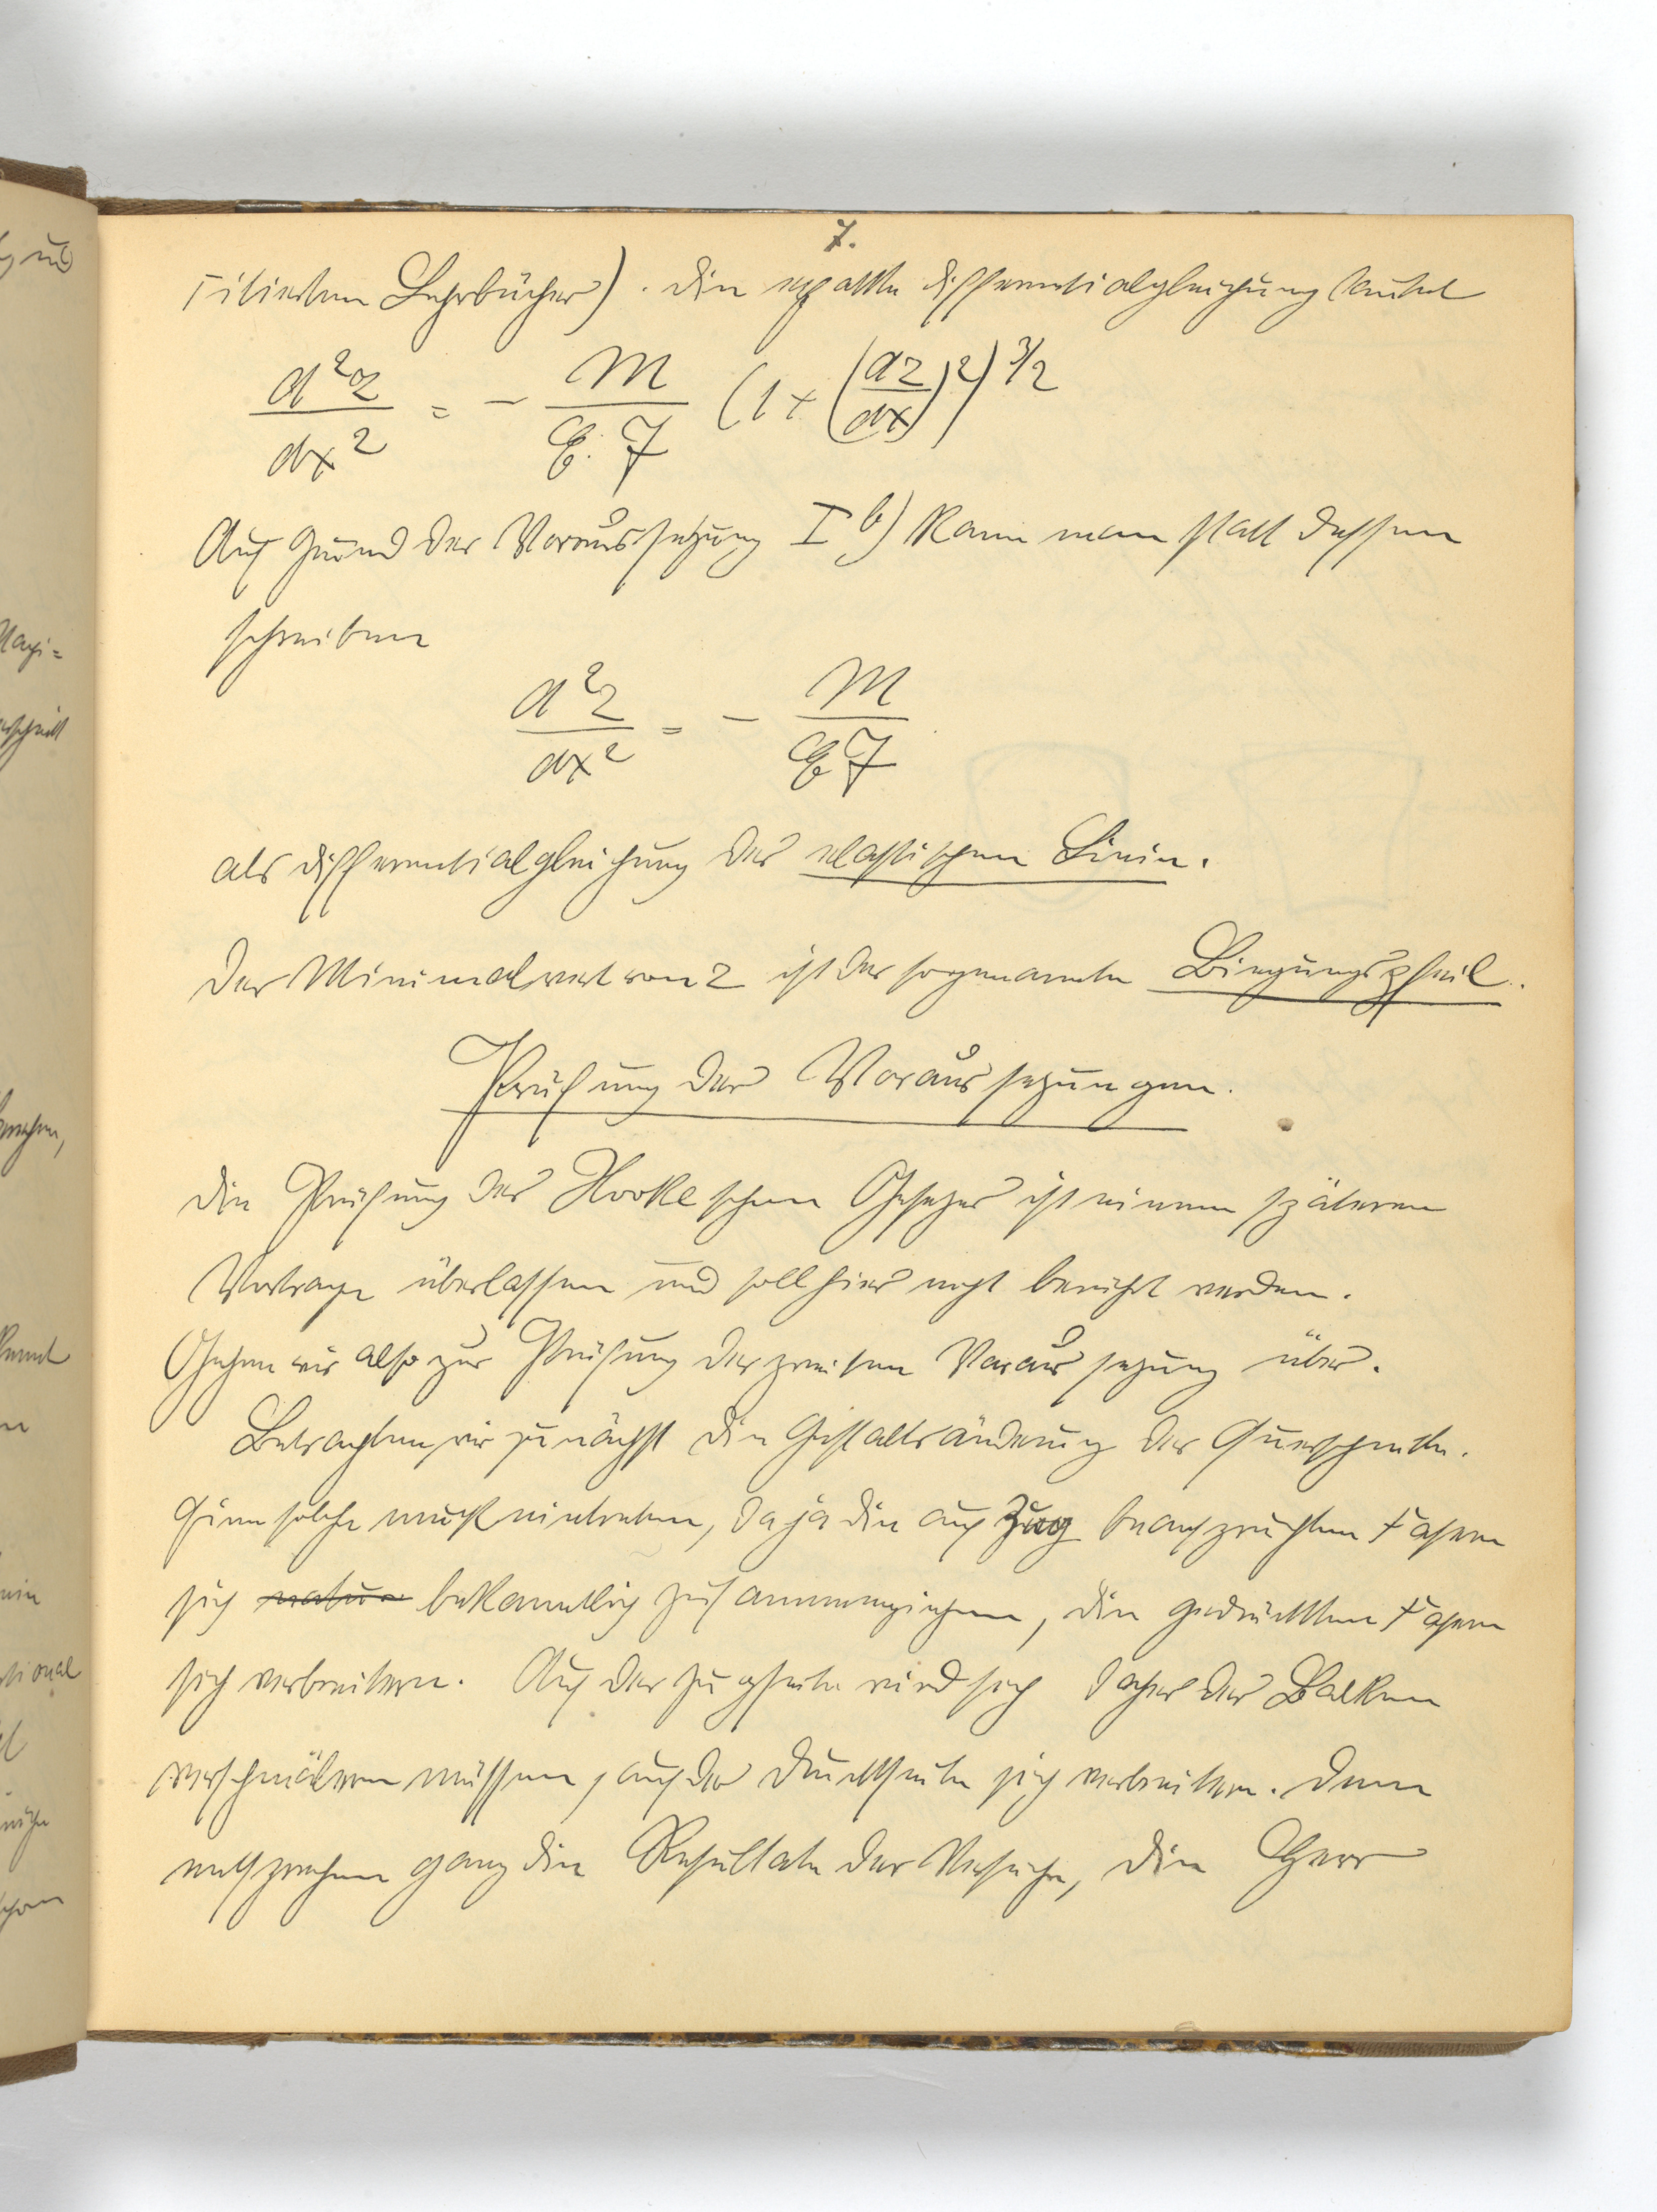 7.
zitierten Lehrbücher). Die exakte Differentialgleichung lautet
d²z/dx² = - M/(E·J) (1 + (dz/dx)²)^3/2
Auf Grund der Voraussetzung I b) kann man statt dessen
schreiben
d²z/dx² = - M/(E J)
als Differentialgleichung der elastischen Linie.
Der Minimalwert von z ist der sogenannte Biegungspfeil.
Prüfung der Voraussetzungen.
Die Prüfung des Hookeschen Gesetzes ist einem späteren
Vortrage überlassen und soll hier nicht berührt werden.
Gehen wir also zur Prüfung der zweiten Voraussetzung über.
Betrachten wir zunächst die Gestaltsänderung der Querschnitte.
Eine solche muß eintreten, da ja die auf Zug beanspruchten Fasern
sich natur bekanntlich zusammenziehen, die gedrückten Fasern
sich verbreitern. Auf der Zugseite wird sich daher der Balken
verschmälern müssen, auf der Druckseite sich verbreitern. Dem
entsprechen ganz die Resultate der Versuche, die Herr